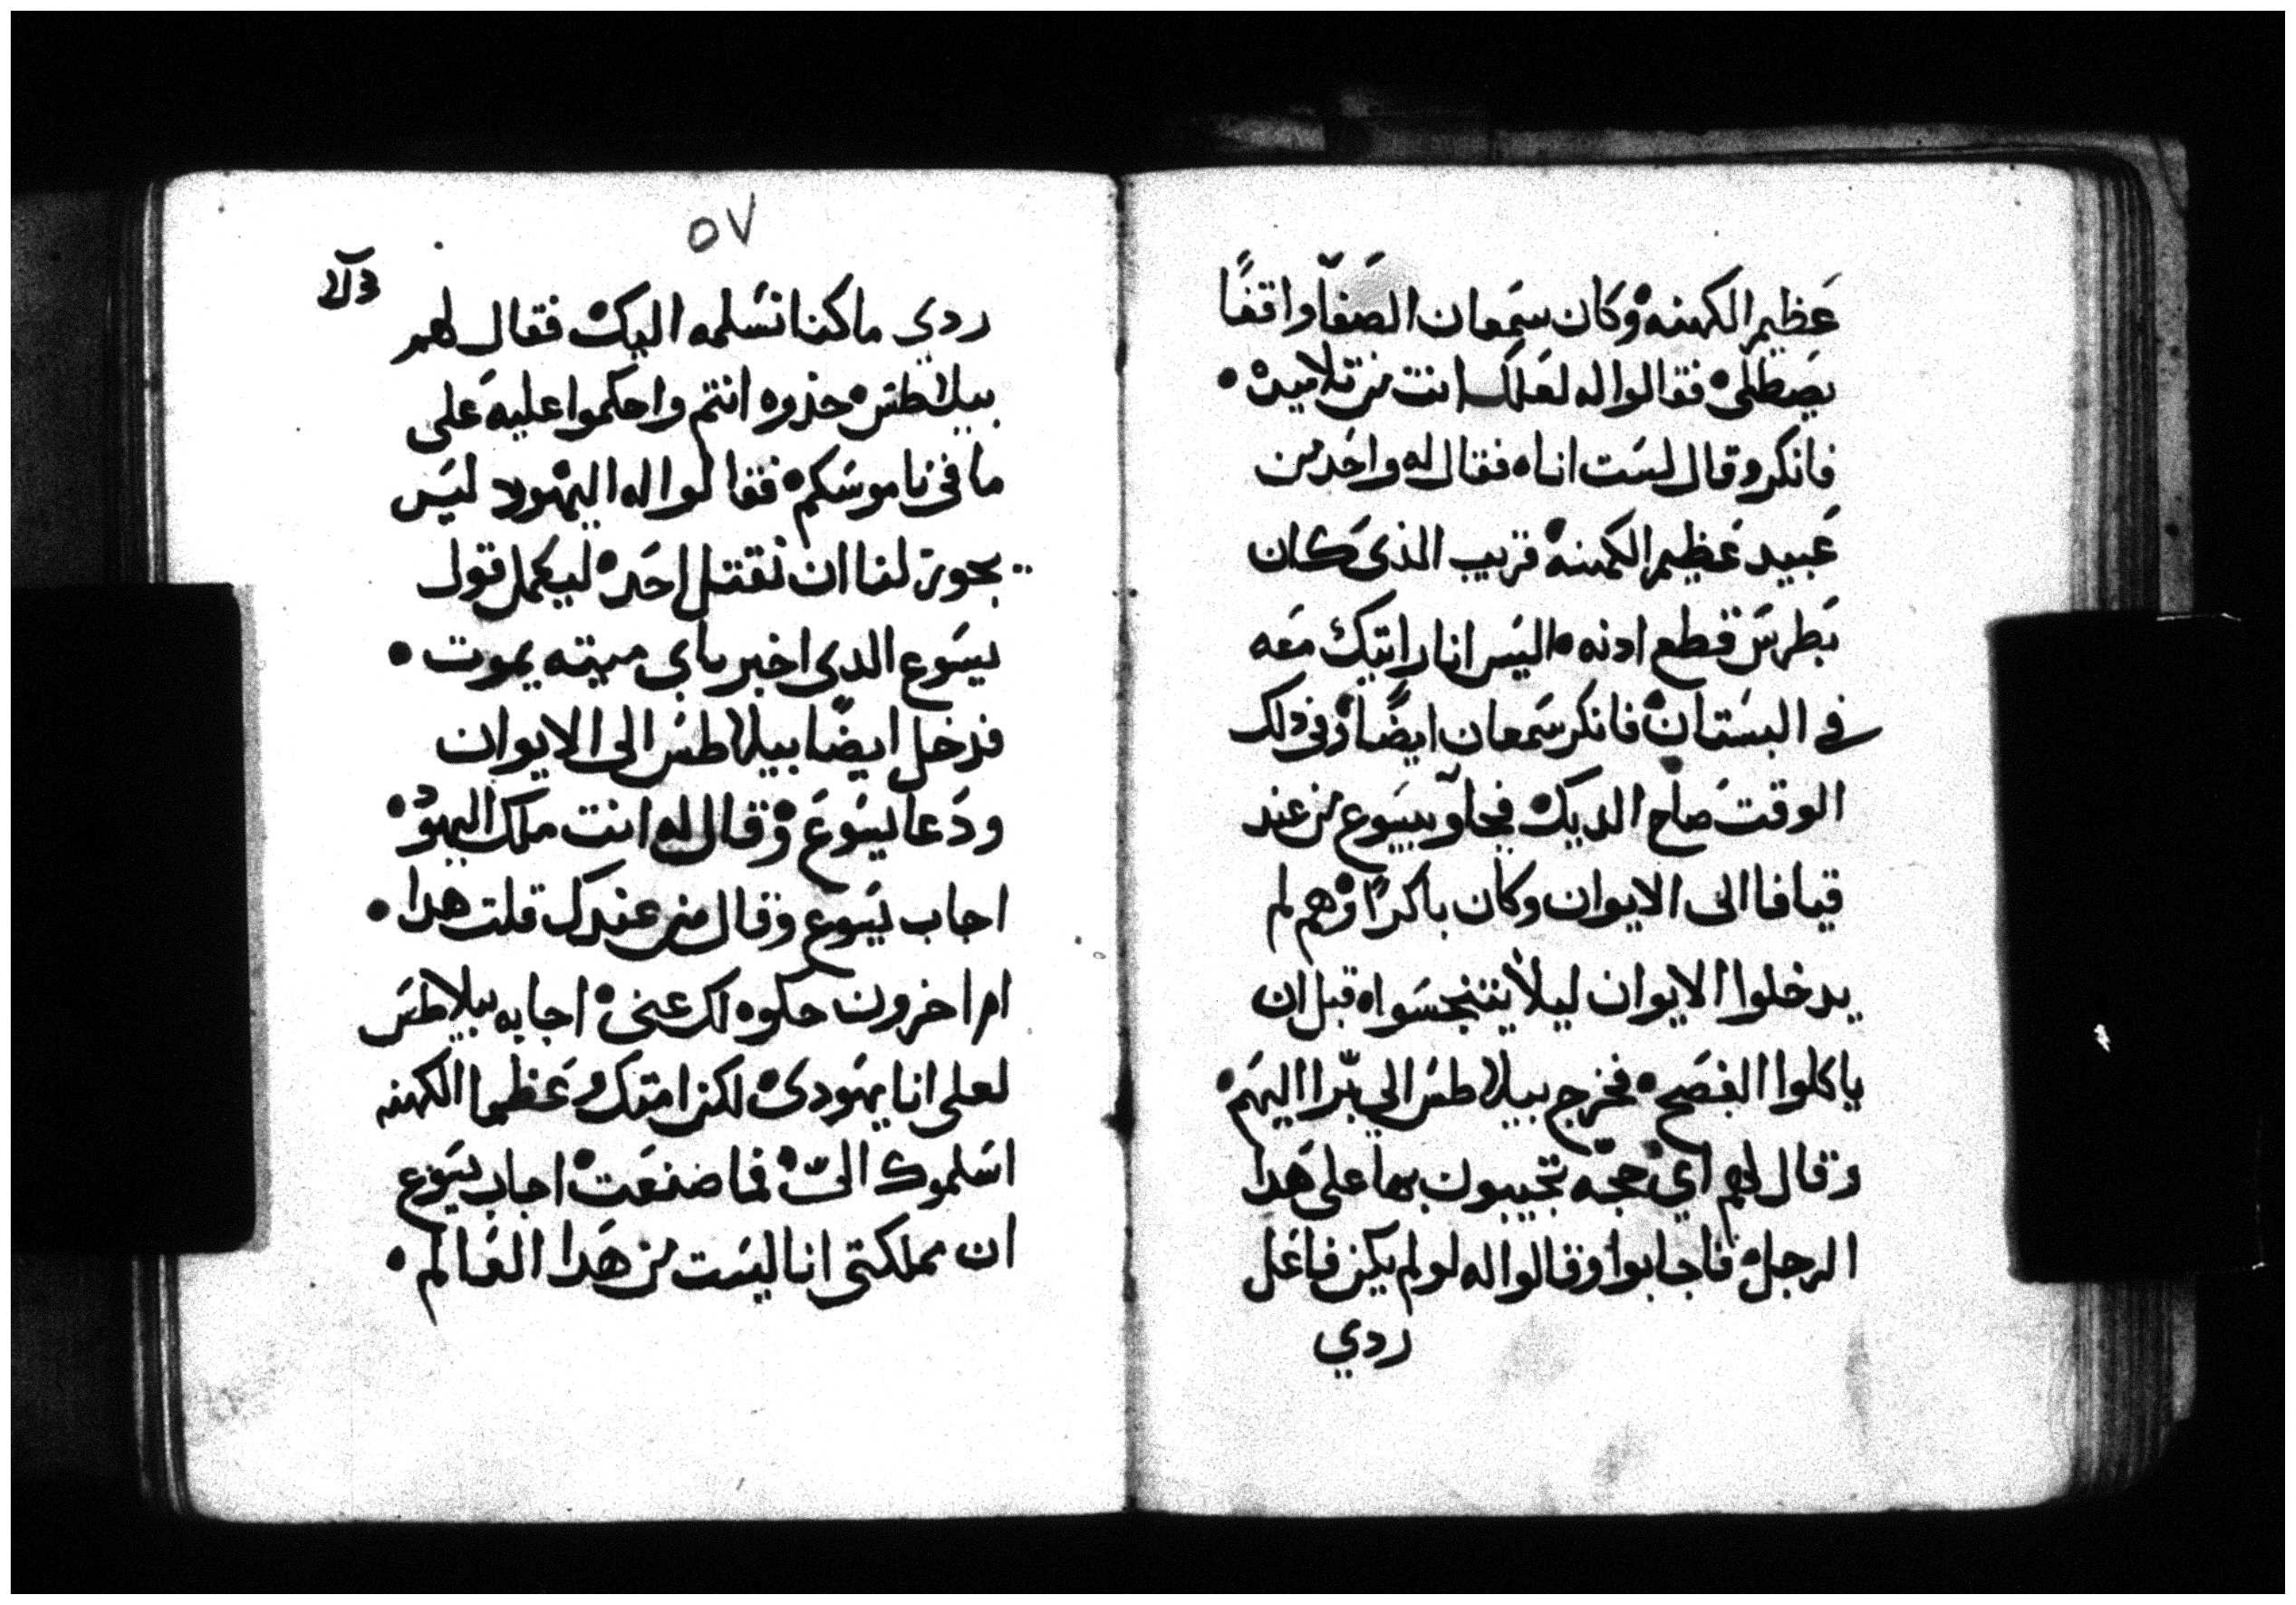 عَظيم الكهنه وكان سمعان الصفا واقفًا
يصطلى فقالوا له لعلك انت من تلاميده
فانكر وقال لست اناه فقال له واحد من
عبيد عظيم الكهنه قريب الذى كان
بطرس قطع ادنه اليس انا رايتك معه
فى البستان فانكر سمعان ايضًا وفى دلك
الوقت صاح الديك فجاو بيسوع من عند
قيافا الى الايوان وكان باكرًا وهم لم
يدخلوا الايوان ليلا يتنجسوا قبل ان
ياكلوا الفصح فخرج بيلاطس الي برا اليهم
وقال لهم اي حجه تجيبون بها على هدا
الرجل فاجابوا وقالوا له لو لم يكن فاعل
ردي
٥٧
ردي ما كنا نسلمه اليك فقال لهم
بيلاطس خذوه انتم واحكموا عليه على
ما فى ناموسكم فقالوا له اليهود ليس
يجوز لنا ان نقتل احد ليكمل قول
يسوع الدى اخبر باي ميته يموت
فدخل ايضًا بيلاطس الى الايوان
ودعا يسوع وقال له انت ملك اليهود
اجاب يسوع وقال من عندك قلت هدا
ام اخرون حكوه لك عنى اجابه بيلاطس
لعلى انا يهودى لكن امتك وعظما الكهنه
اسلموك الىّ فما صنعت اجاب يسوع
ان مملكتى انا ليست من هدا العالم